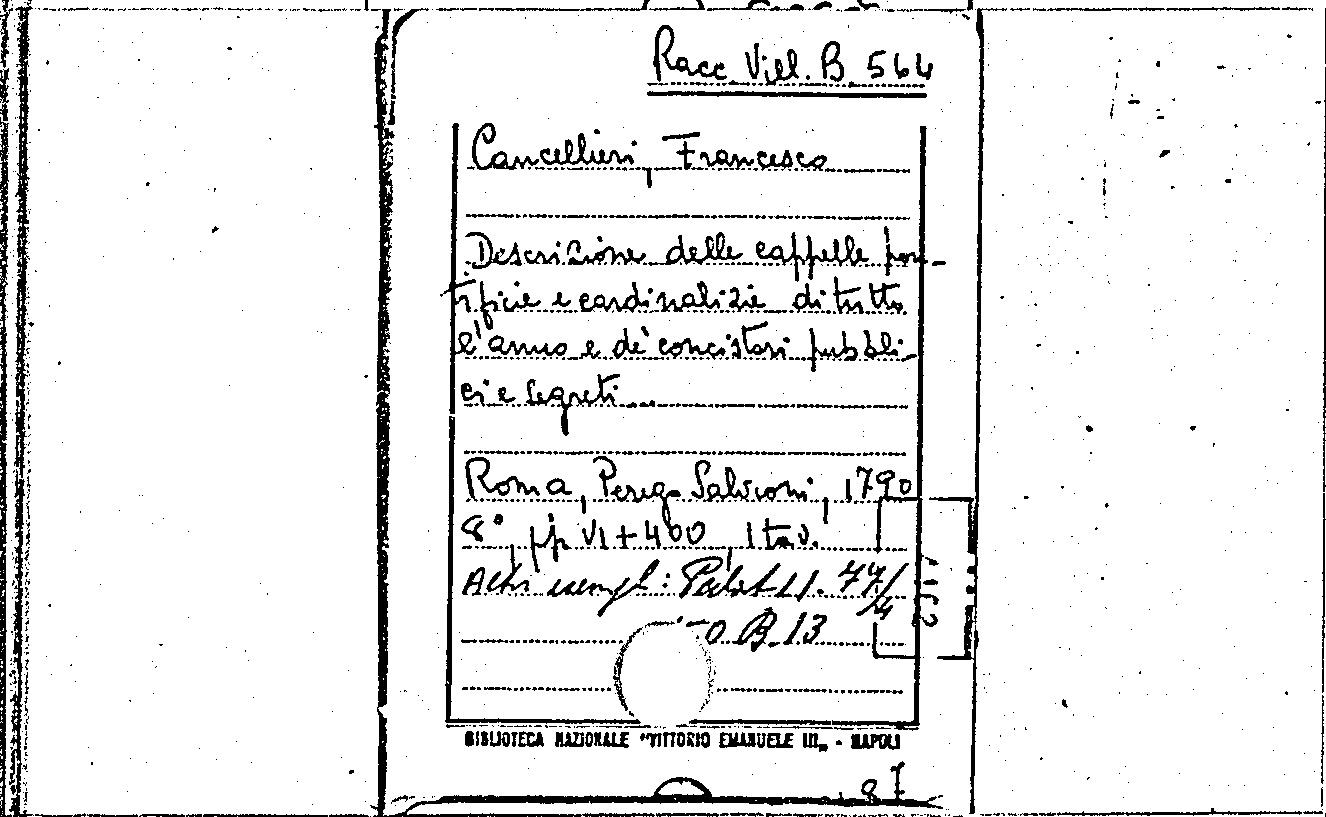 Racc. Vill. B. 564
Cancellieri, Francesco
Descrizione delle cappelle pon-
tificie e cardinalizie di tutto
l'anno e de' concistori pubbli-
ci e segreti...
Roma, Pereg. Salvioni, 1790
8°, pp. VI+400, 1 tav.
Altri esempl: Palat LI. 77/4
B. 13
BIBLIOTECA NAZIONALE "VITTORIO EMANUELE III" - NAPOLI